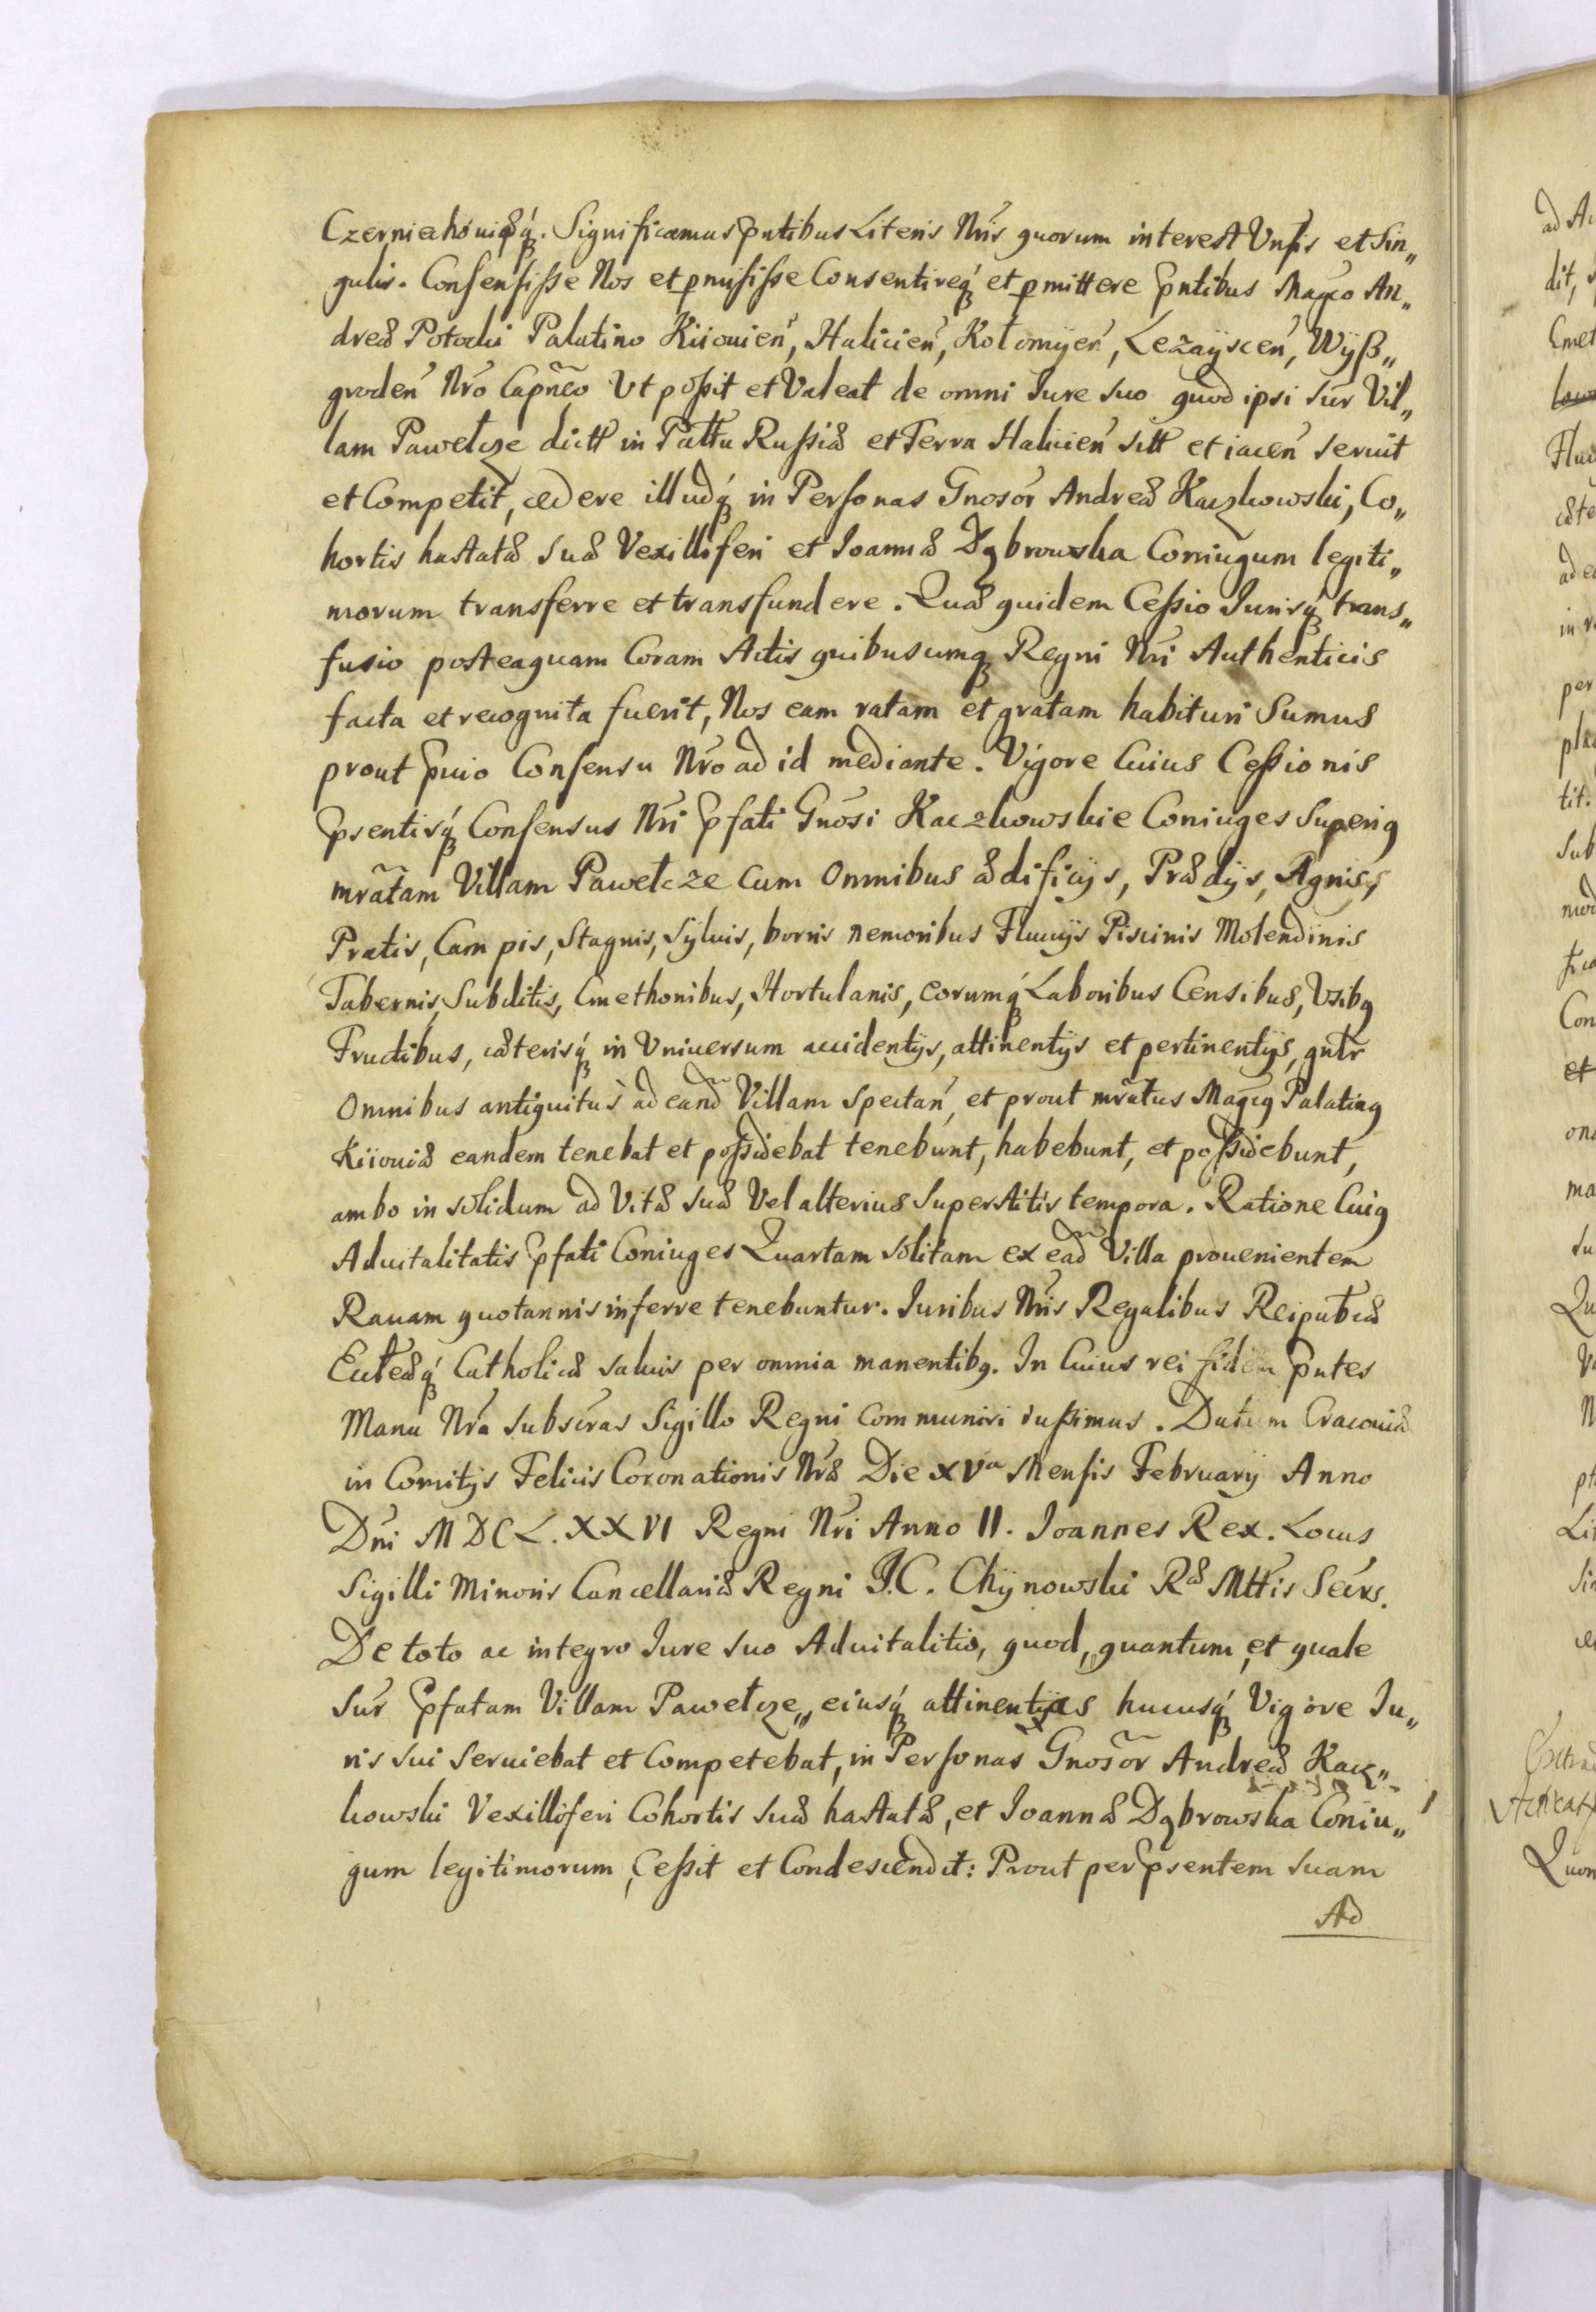 Czerniehouiæq́. Significamus Pntibus Literis Nris quorum interest Vnsis et Sin„
gulis. Consensiſse Nos et pmisiſse Consentireq́ et pmittere Pntibus Magco An„
dreæ Potocki Palatino Kiiouień, Halicień, Kołomyień, Leżaysceń, Wyß„
grodeń Nro Capneo Vt poſsit et Valeat de omni Iure suo quod ipsi sur Vil„
lam Pawełcze dictt in Pałttu Ruſsiæ et Terra Halicień sitt et iaceń seruit
et Competit, cedere illudq́ in Personas Gnosor Andreæ Kaczkowski, Co„
hortis hastatæ suæ Vexilliferi et Ioannæ Dąbrowska Coniugum legiti„
morum transferre et transfundere. Quæ quidem Ceſsio Iurisq́ trans„
fusio posteaquam Coram Actis quibuscumq Regni Nri Authenticis
facta et recognita fuerit, Nos eam ratam et gratam habituri Sumus
prout Pnio Consensu Nro ad id mediante. Vigore Cuius Ceſsionis
Psentisq́ Consensus Nri Pfati Gnosi Kaczkowskie Coniuges Superig
mratam Villam Pawełcze Cum Omnibus ædificijs, Prædijs, Agris,
Pratis, Campis, Stagnis, Syluis, borris nemoribus Fluuijs Piscinis Molendinis
Tabernis, Subditis, Cmethonibus, Hortulanis, eorumq́ Laboribus Censibus, Vsibg
Fructibus, cæterisq́ in Vniuersum accidentijs, attinentijs et pertinentijs, gnlr
Omnibus antiquitus ad eand Villam spectań, et prout mratus Magcg Palating
Kiiouiæ eandem tenebat et poſsidebat tenebunt, habebunt, et poſsidebunt,
ambo in solidum ad Vitæ suæ Vel alterius Superstitis tempora. Ratione Cuig
Aduitalitatis Pfati Coniuges Quartam solitam ex ead Villa prouenientem
Rauam quotannis inferre tenebuntur. Iuribus Nris Regalibus Reipublcæ
Ecclesiæq́ Catholicæ saluis per omnia manentibg. In Cuius rei fidem Pntes
Manu Nra subscras Sigillo Regni Communiri iuſsimus. Datum Cracouiæ
in Comitijs Felicis Coronationis Nræ Die XVa Mensis February Anno
Dni MDCL.XXVI Regni Nri Anno II. Ioannes Rex. Locus
Sigilli Minoris Cancellariæ Regni J.C. Chynowski Ræ Mttis Secrs.
De toto ac integro Iure suo Aduitalitio, quod, quantum, et quale
Sur Pfatam Villam Pawełcze„ eiusq́ attinentias hucusq́ Vigore Iu„
ris sui seruiebat et Competebat, in Personas Gnosor Andreæ Kacz„
kowski Vexilliferi Cohortis suæ hastatæ, et Ioannæ Dąbrowska Coniu„
gum legitimorum, Ceſsit et Condescendit: Prout per Psentem suam
Ad